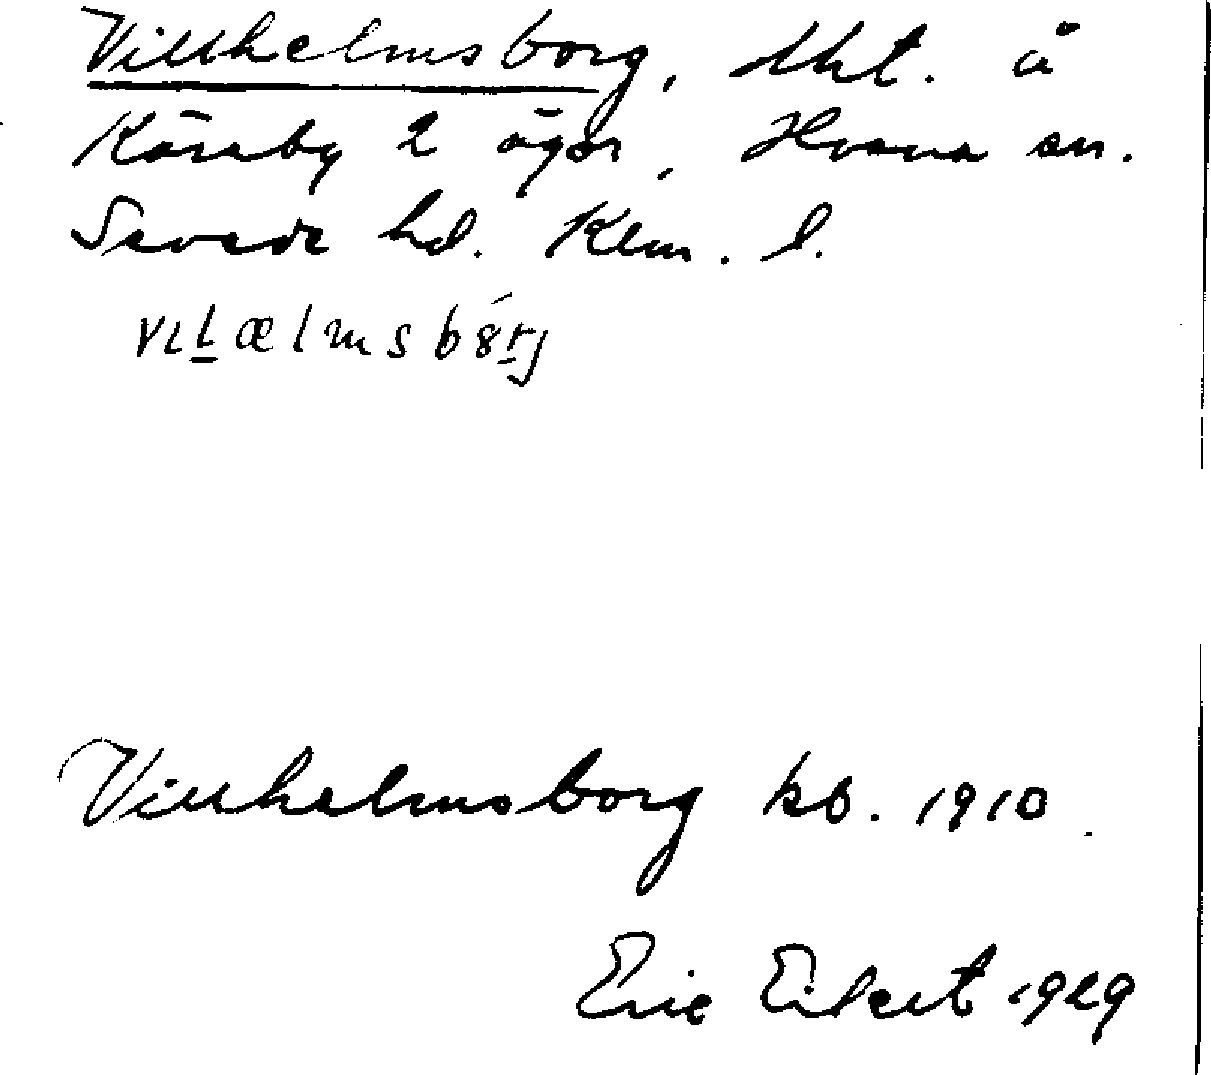 Villhelmsborg, lht. å
Kårsby 2 ägor, Hvena sn.
Sevede hd. Klm. l.
vɩlælmsbȣrj
Villhelmsborg kb. 1910.
Eric Eilert 1929